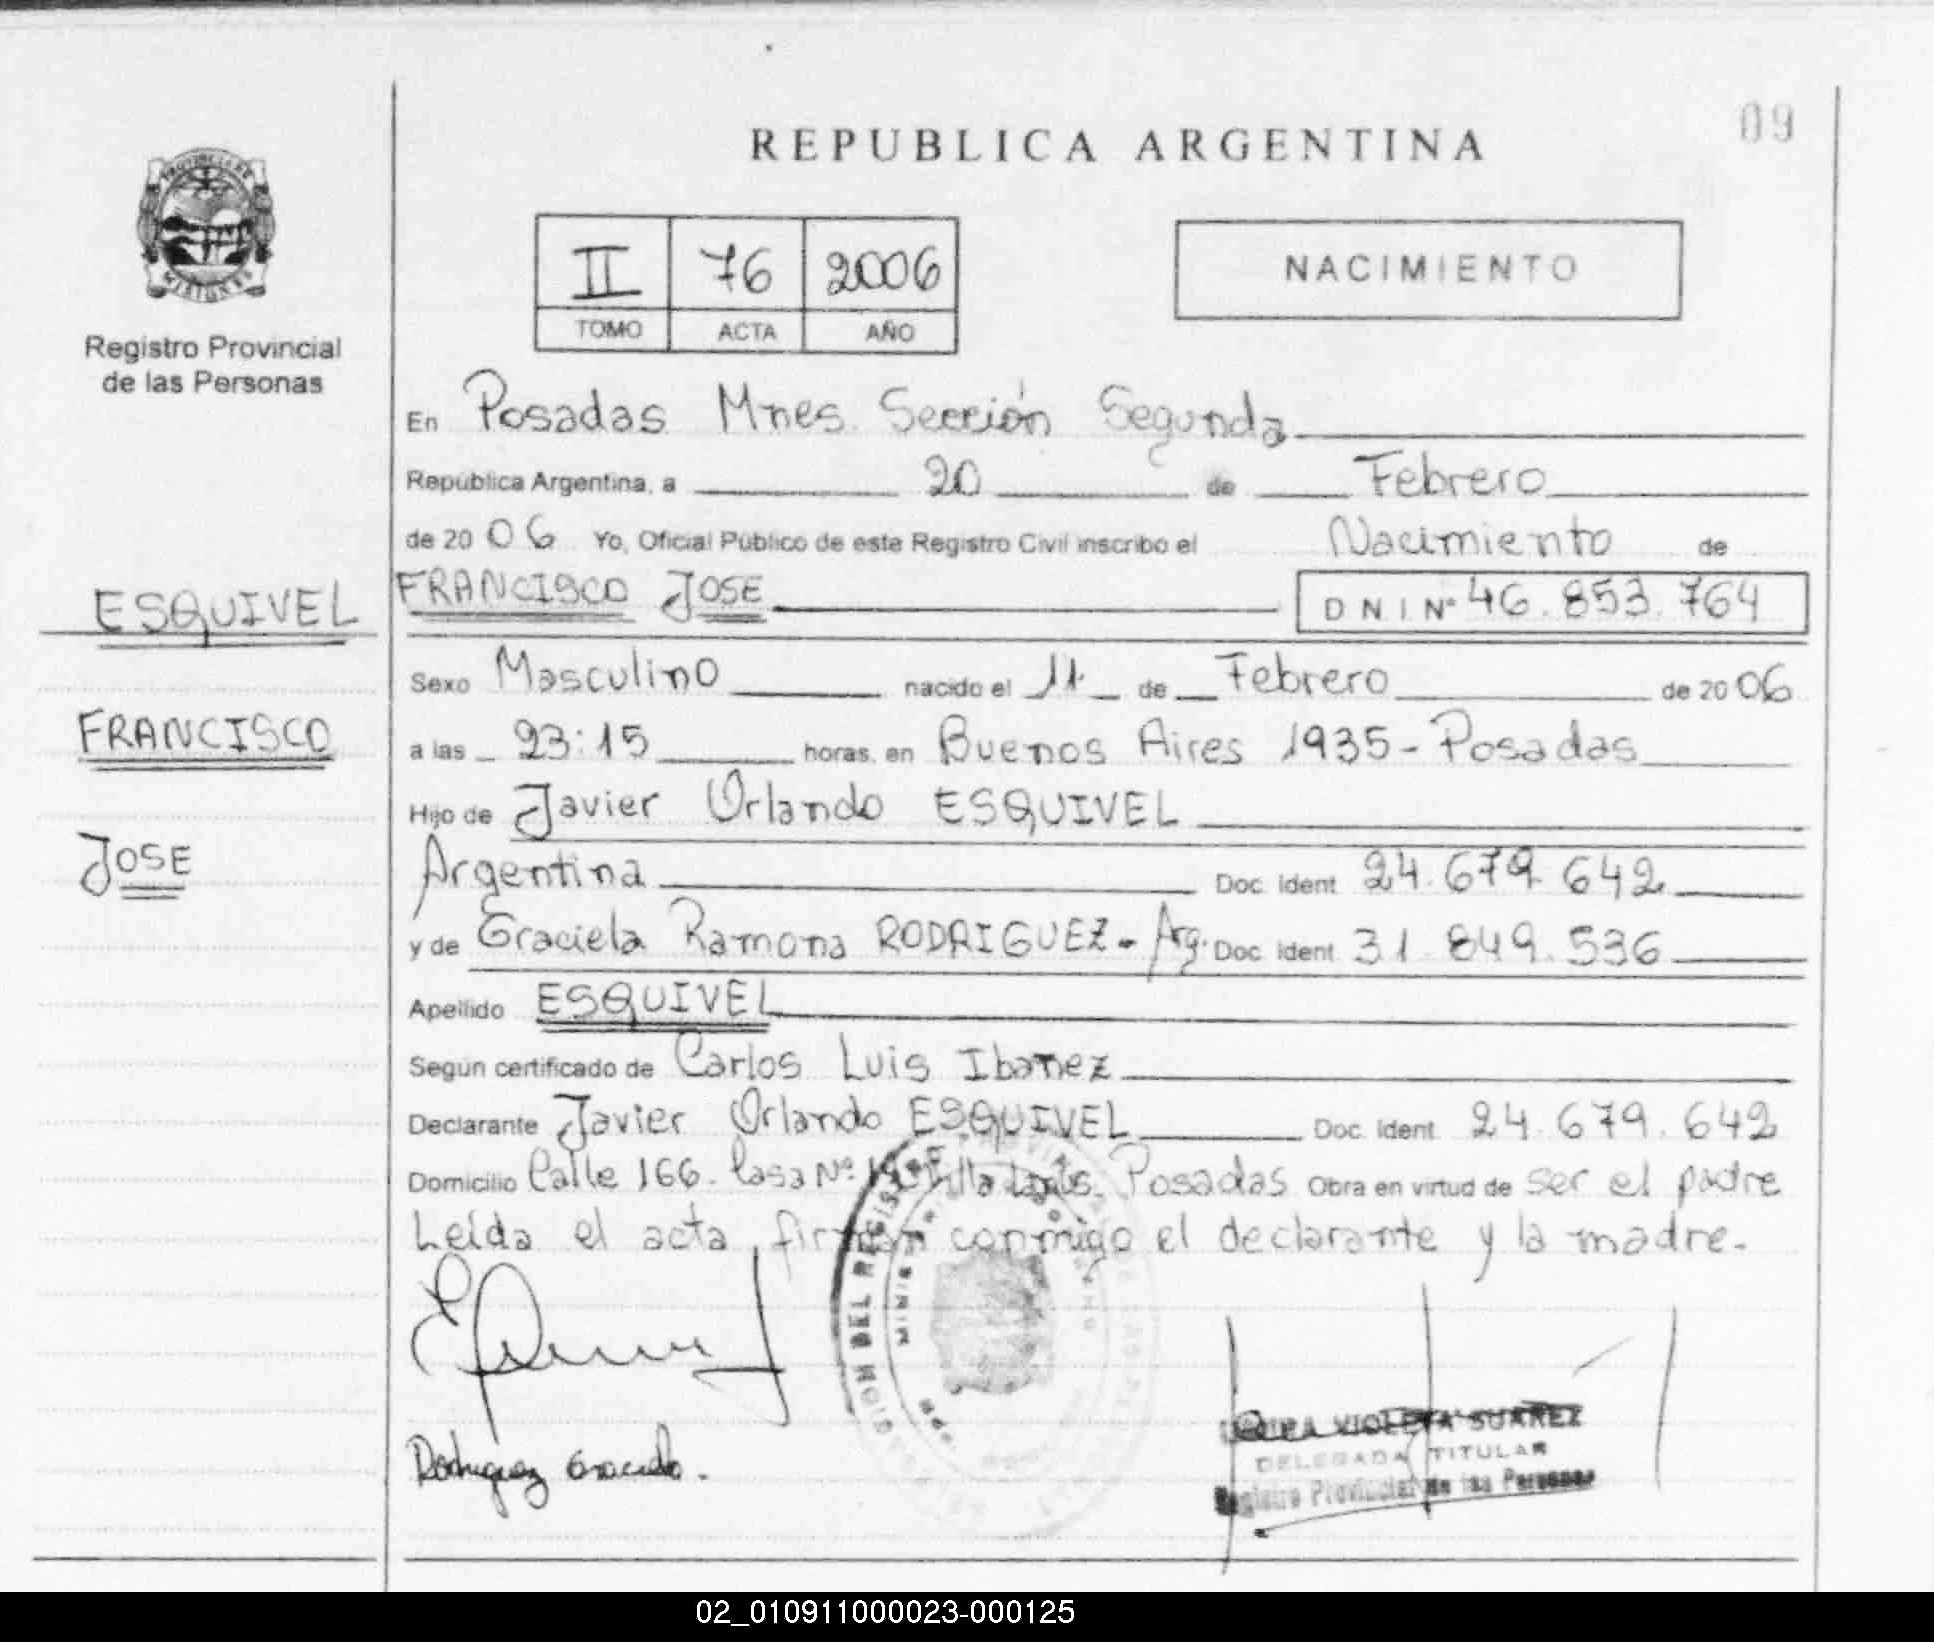 09
REPUBLICA ARGENTINA
II 76 2006
TOMO ACTA AÑO
NACIMIENTO
PROVINCIA DE
MISIONES
Registro Provincial
de las Personas
ESQUIVEL
FRANCISCO
JOSE
En Posadas Mnes. Sección Segunda
República Argentina, a 20 de Febrero
de 20 06 Yo, Oficial Público de este Registro Civil inscribo el Nacimiento de
FRANCISCO JOSE DNI Nº 46.853.764
Sexo Masculino nacido el 11 de Febrero de 20 06
a las 23:15 horas, en Buenos Aires 1935-Posadas
Hijo de Javier Orlando ESQUIVEL
Argentina Doc. Ident. 24.679.642
y de Graciela Ramona RODRIGUEZ - Arg. Doc. Ident. 31.849.536
Apellido ESQUIVEL
Según certificado de Carlos Luis Ibañez
Declarante Javier Orlando ESQUIVEL Doc. Ident. 24.679.642
Domicilio Calle 166. Casa Nº Posadas Obra en virtud de ser el padre
Leída el acta, firman conmigo el declarante y la madre.
Rodriguez Graciela.
VIOLETA SUAREZ
DELEGADA TITULAR
Registro Provincial de las Personas
02_010911000023-000125